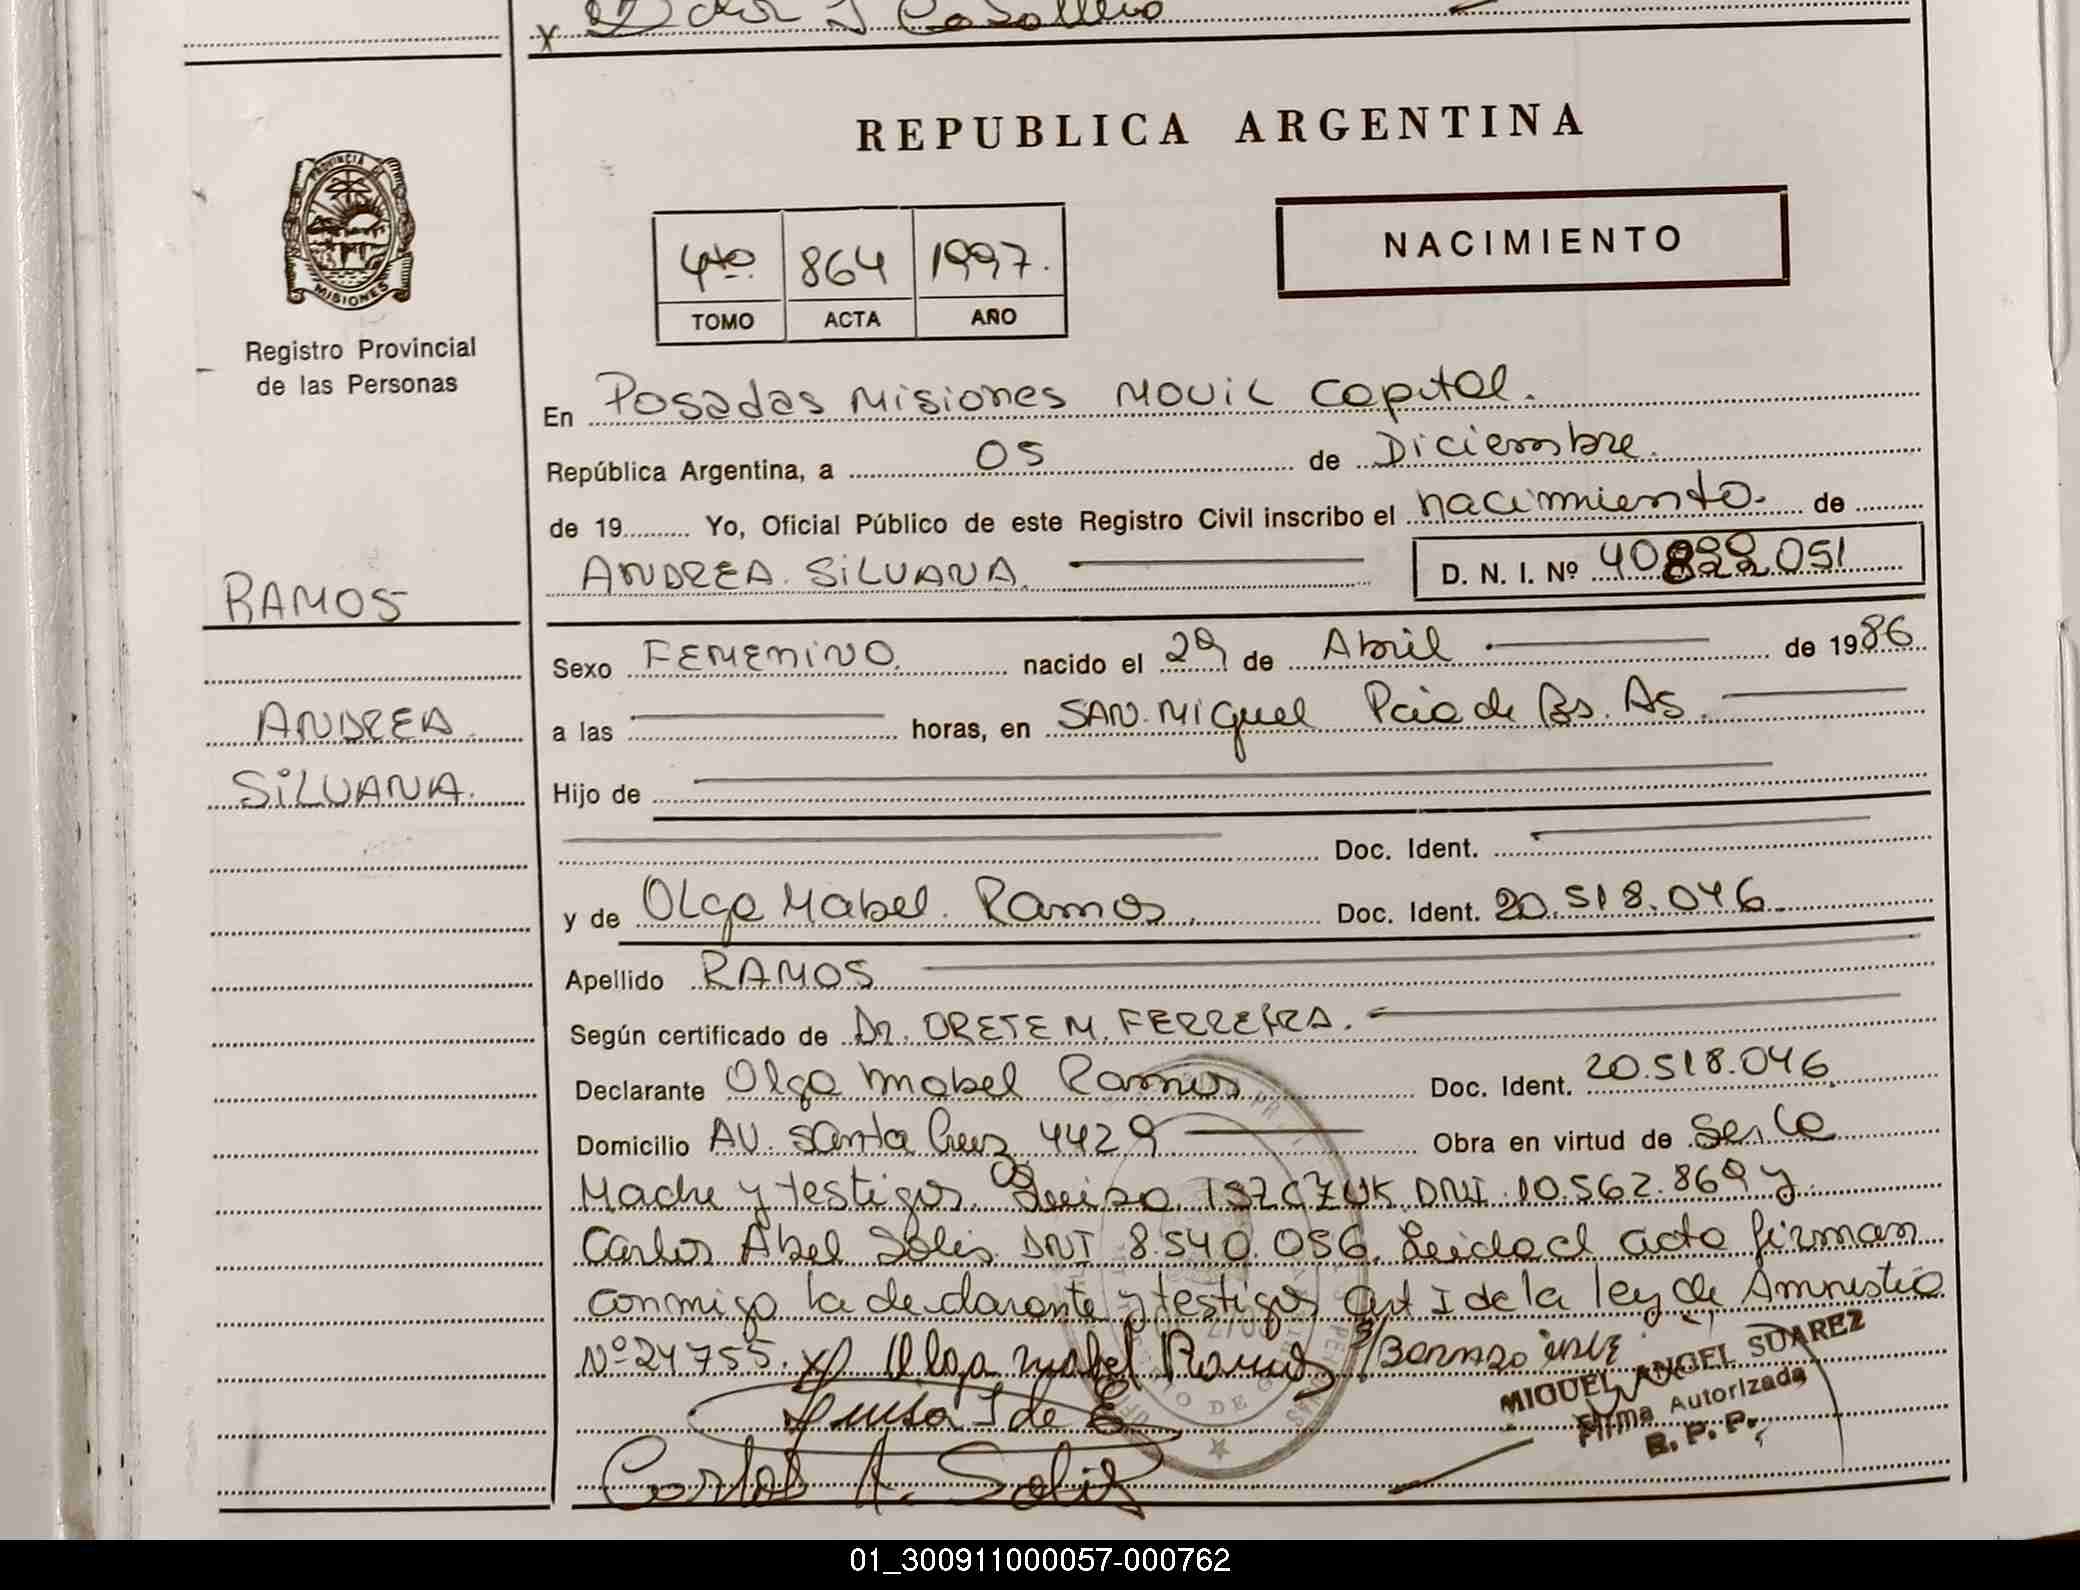 REPUBLICA ARGENTINA
PROVINCIA DE
MISIONES
Registro Provincial
de las Personas
4to 864 1997.
TOMO ACTA AÑO
NACIMIENTO
En Posadas Misiones Movil Capital.
República Argentina, a 05 de Diciembre.
de 19 Yo, Oficial Público de este Registro Civil inscribo el nacimiento. de
ANDREA. SILVANA. D. N. I. Nº 40.822.051
RAMOS
ANDREA.
SILVANA.
Sexo FEMENINO. nacido el 29 de Abril de 1986
a las horas, en SAN. Miguel Pcia de Bs. As.
Hijo de
Doc. Ident.
y de Olga Mabel. Ramos. Doc. Ident. 20.518.046.
Apellido RAMOS
Según certificado de Dr. ORETE M. FERREIRA.
Declarante Olga Mabel Ramos Doc. Ident. 20.518.046.
Domicilio AV. Santa Cruz 4429 Obra en virtud de Ser La
Madre y testigos. Luisa. ISZCZUK DNI. 10.562.869 y
Carlos Abel Solis. DNI 8.540.056. Leida el acta firman
conmigo la declarante y testigos Art I de la ley de Amnistia
Nº 24755. Olga Mabel Ramos
MIGUEL ANGEL SUAREZ
Firma Autorizada
R. P. P.
Luisa I de E
Carlos A. Solis
01_300911000057-000762